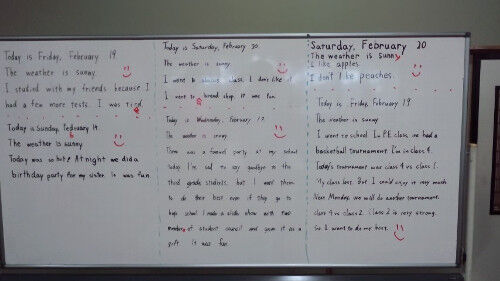 Today is Friday, February 19
The weather is sunny
I studied with my friends because I
had a few more tests. I was tired.
Today is Sunday, February 14.
The weather is sunny
Today was so hot! At night we did a
birthday party for my sister. It was fun.
Today is Saturday, February 20.
The weather is sunny
I went to class. I don't like it
I went to bread shop. It was fun.
Today is Wednesday, February 17.
The weather is sunny
There was a farewell party at my school
today. I'm sad to say goodbye to the
third grade students, but I want them
to do their best even if they go to
high school. I made a slide show with two
members of student council and gave it as a
gift. It was fun.
Saturday, February 20
The weather is sunny
I like apples.
I don't like peaches.
Today is Friday, February 19
The weather is sunny
I went to school. In P.E class, we had a
basketball tournament. I'm in class 4.
Today's tournament was class 4 vs class 1.
My class lost. But I could enjoy it very much.
Next Monday, we will do another tournament.
Class 4 vs class 2. Class 2 is very strong.
So I want to do my best.